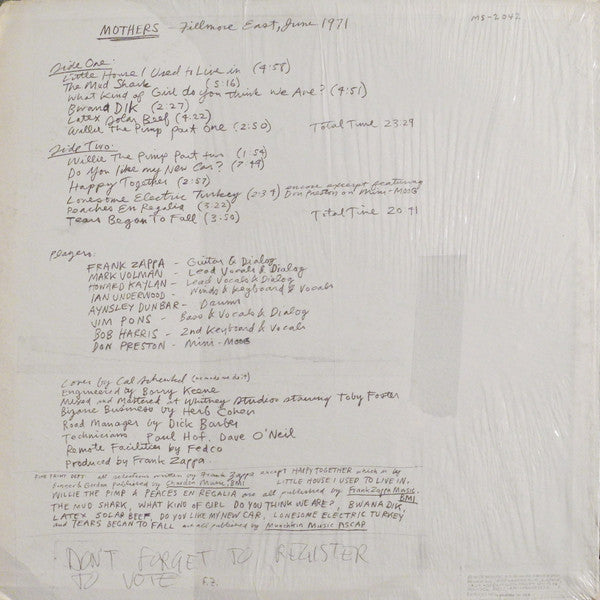 MOTHERS - Fillmore East, June 1971
MS-2042
Side One:
Little House I Used to Live in (4:58)
The Mud Shark (5:16)
What Kind of Girl do you Think We Are? (4:51)
Bwana DIK (2:27)
Latex Solar Beef (4:22)
Willie The Pimp Part One (2:50) Total Time 23:29
Side Two:
Willie The Pimp Part two (1:54)
Do You like my New Car? (7:49)
Happy Together (2:57)
Lonesome Electric Turkey (2:34) encore excerpt featuring Don Preston on Mini-Moog
Peaches En Regalia (3:22)
Tears Began To Fall (3:50) Total Time 20:41
Players:
FRANK ZAPPA - Guitar & Dialog
MARK VOLMAN - Lead Vocals & Dialog
HOWARD KAYLAN - Lead Vocals & Dialog
IAN UNDERWOOD - Winds & Keyboard & Vocals
AYNSLEY DUNBAR - Drums
JIM PONS - Bass & Vocals & Dialog
BOB HARRIS - 2nd Keyboard & Vocals
DON PRESTON - Mini-Moog
Cover by Cal Schenkel
Engineered by Barry Keene
Mixed and Mastered at Whitney Studios starring Toby Foster
Bizarre Business by Herb Cohen
Road Manager by Dick Barber
Technicians Paul Hof, Dave O'Neil
Remote Facilities by Fedco
Produced by Frank Zappa
FINE PRINT DEPT. all selections written by Frank Zappa except HAPPY TOGETHER which is by
Bonner & Gordon published by Chardon Music, BMI LITTLE HOUSE I USED TO LIVE IN,
WILLIE THE PIMP & PEACES EN REGALIA are all published by Frank Zappa Music, BMI
THE MUD SHARK, WHAT KIND OF GIRL DO YOU THINK WE ARE?, BWANA DIK,
LATEX SOLAR BEEF, DO YOU LIKE MY NEW CAR, LONESOME ELECTRIC TURKEY
and TEARS BEGAN TO FALL are all published by Munchkin Music ASCAP
DON'T FORGET TO REGISTER
TO VOTE F.Z.